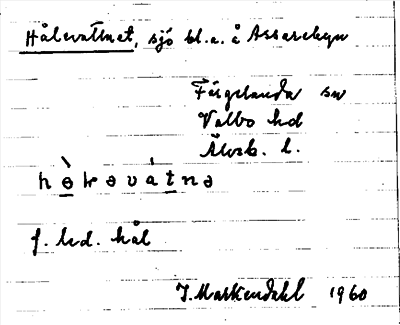 Hålevattnet, sjö bl.a. å Assarebyn
Färgelanda sn
Valbo hd
Älvsb. l.
f. led. hål
J. Markendahl 1960